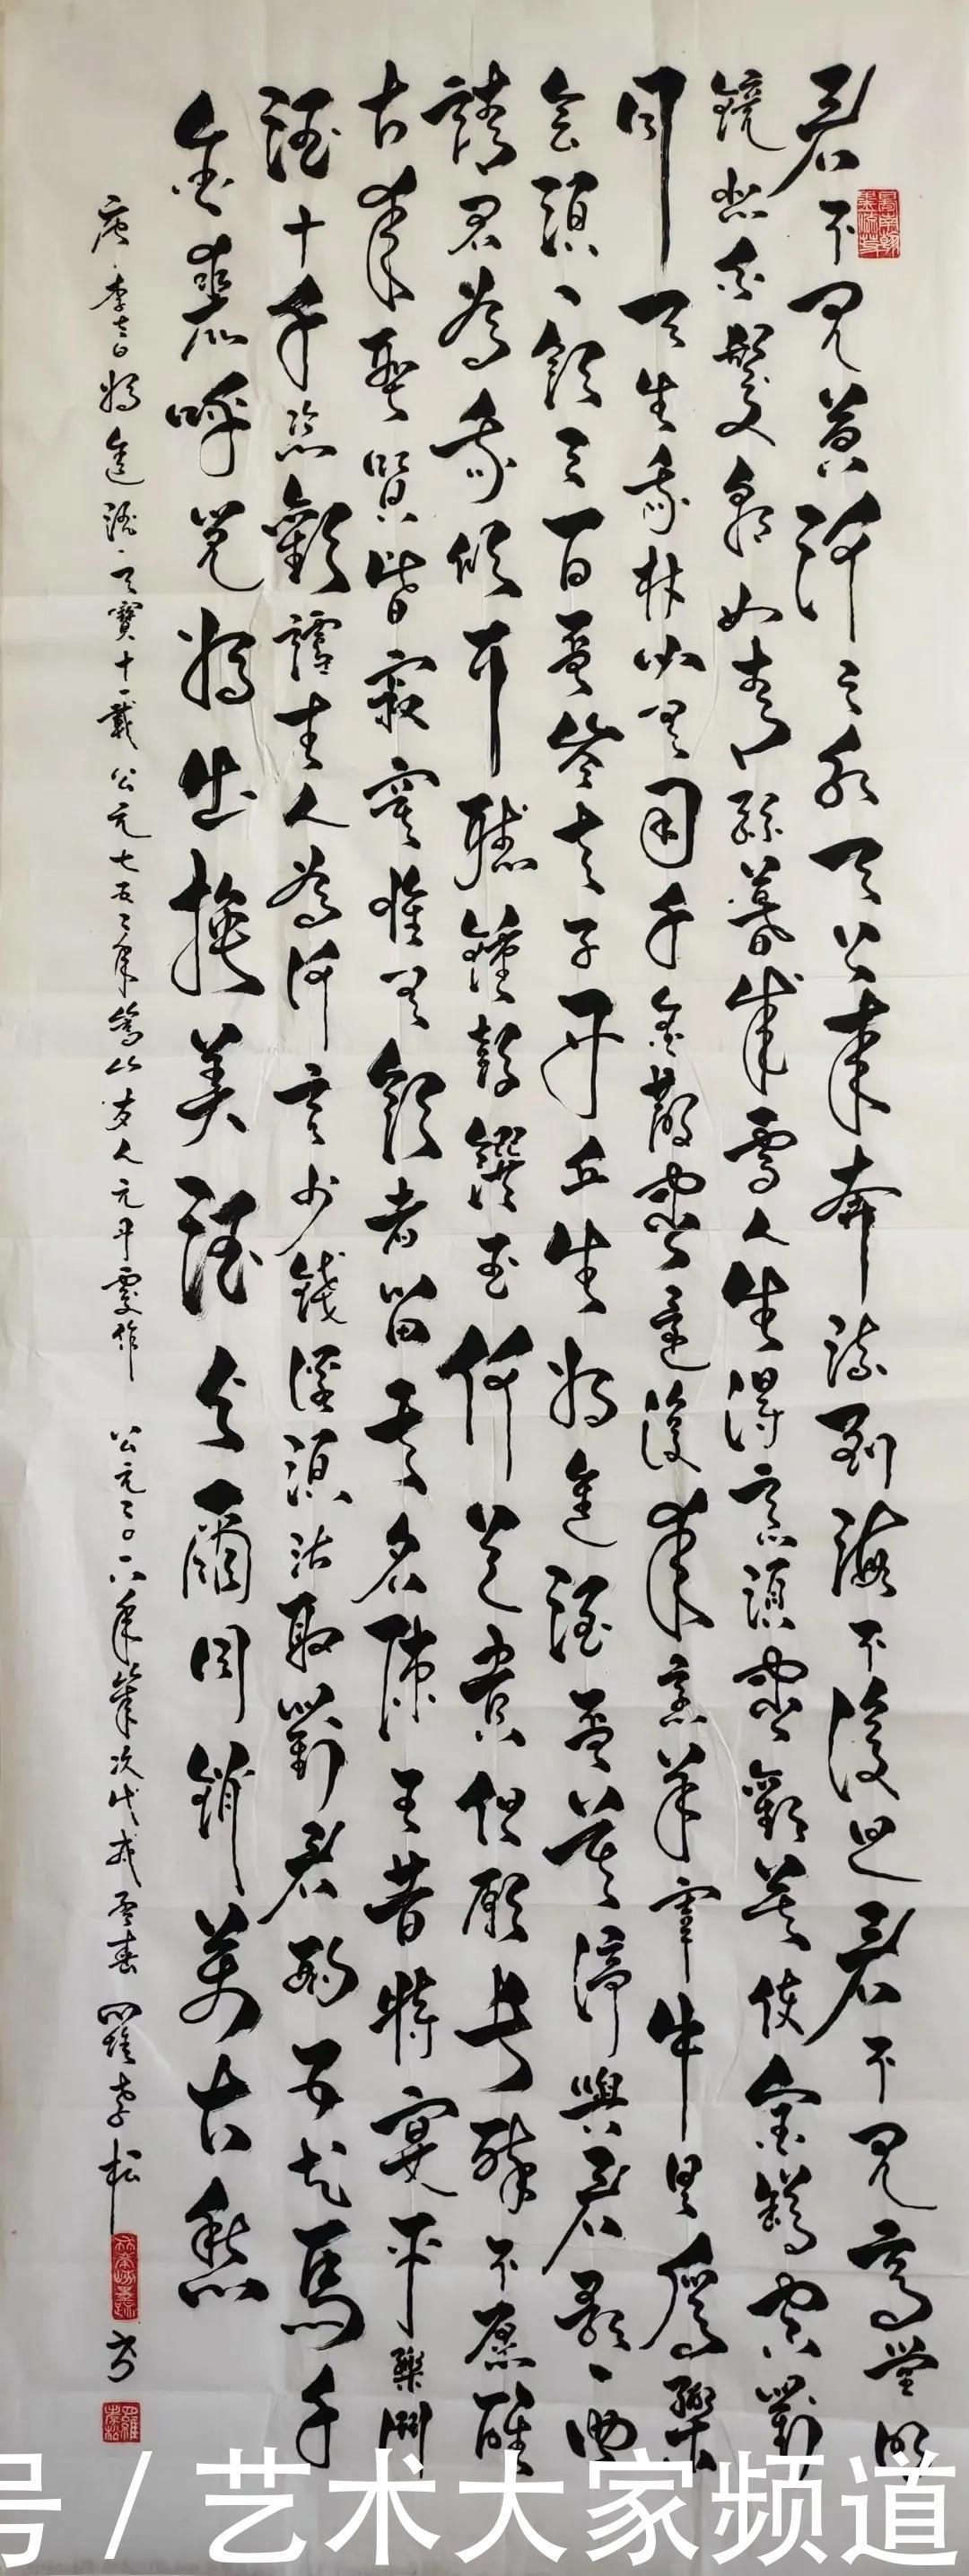 君不见黄河之水天上来奔流到海不复回君不见高堂明
镜悲白发朝如青丝暮成雪人生得意须尽欢莫使金樽空对
月天生我材必有用千金散尽还复来烹羊宰牛且为乐
会须一饮三百杯岑夫子丹丘生将进酒杯莫停与君歌一曲
请君为我倾耳听钟鼓馔玉何足贵但愿长醉不愿醒
古来圣贤皆寂寞惟有饮者留其名陈王昔时宴平乐斗
酒十千恣欢谑主人为何言少钱径须沽取对君酌五花马千
金裘呼儿将出换美酒与尔同销万古愁
唐李白将进酒天宝十一载公元七五二年嵩山友人元丹处作 公元二〇一八年笔次戊戌 李松
号/艺术大家频道